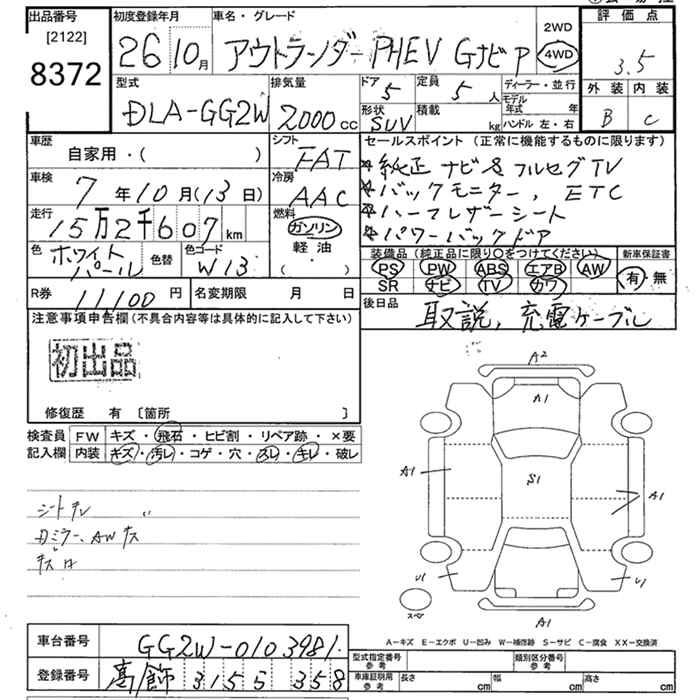 出品番号 初度登録年月 車名・グレード 2WD 評価点
[2122] 26 10月 アウトランダーPHEV Gナビ P 4WD 3.5
8372
型式 排気量 ドア 定員 ディーラー・並行 外装 内装
DLA-GG2W 2000cc 5 5人 モデル年式 年 B C
形状 積載 ハンドル 左・右
SUV kg
車歴 シフト セールスポイント (正常に機能するものに限ります)
自家用・( ) FAT *純正ナビ&フルセグTV
車検 冷房 *バックモニター, ETC
7年10月(13日) AAC *ハーフレザーシート
走行 燃料 *パワーバックドア
15万2千607km ガソリン
軽油
・( )
色 ホワイトパール 色替 色コード W13
装備品 (純正品に限り○をつけてください) 新車保証書
PS PW ABS エアB AW 有・無
SR ナビ TV カワ
R券 11100円 名変期限 月 日
後日品 取説, 充電ケーブル
注意事項申告欄 (不具合内容等は具体的に記入して下さい)
初出品
修復歴 有 [箇所 ]
検査員 FW キズ・飛石・ヒビ割・リペア跡・×要
記入欄 内装 キズ・汚レ・コゲ・穴・スレ・キレ・破レ
A2
A1
A1 S1 A1
シートキレ
ミラー、AWキズ
U1 U1
スペア
A1
A-キズ E-エクボ U-凹み W-補修跡 S-サビ C-腐食 XX-交換済
車台番号 GG2W-0103981
型式指定番号 参考 類別区分番号 参考
登録番号 高飾 3155 358
車庫証明用 参考 長さ cm 幅 cm 高さ cm